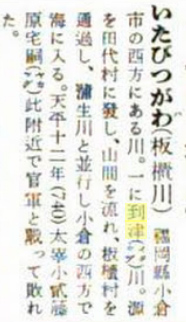 いたびつがわ(板櫃川) 福岡縣小倉
市の西方にある川。一に到津(いたうづ)川。源
を田代村に發し、山間を流れ、板櫃村を
通過し、蒲生川と並行し小倉の西方で
海に入る。天平十二年(740)太宰小貳藤
原宅嗣此附近で官軍と戰つて敗れ
た。